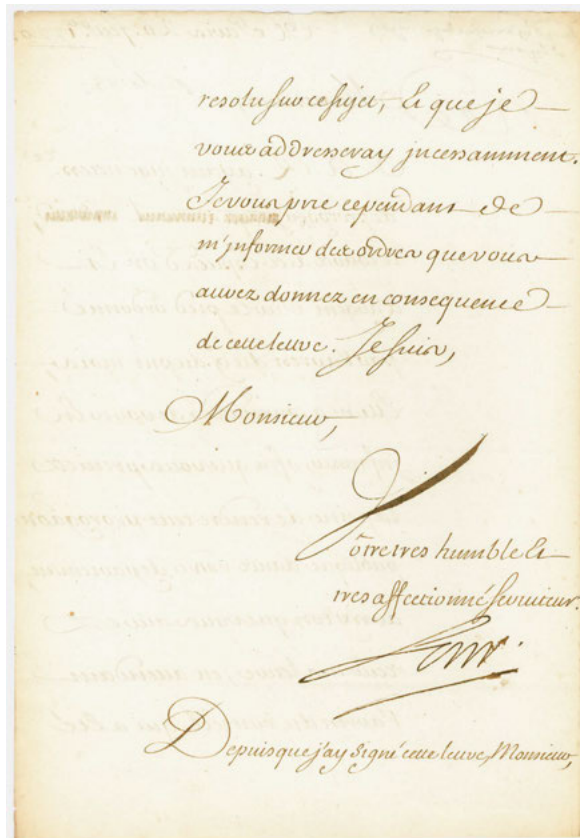 resolu sur ce sujet, et que je
vous addresseray incessamment.
Je vous prie cependant de
m'informer des ordres que vous
aurez donnez en consequence
de cette lettre. Je suis,
Monsieur,
Vôtre tres humble et
tres affectionné serviteur.
Depuis que j'ay signé cette lettre, Monsieur,